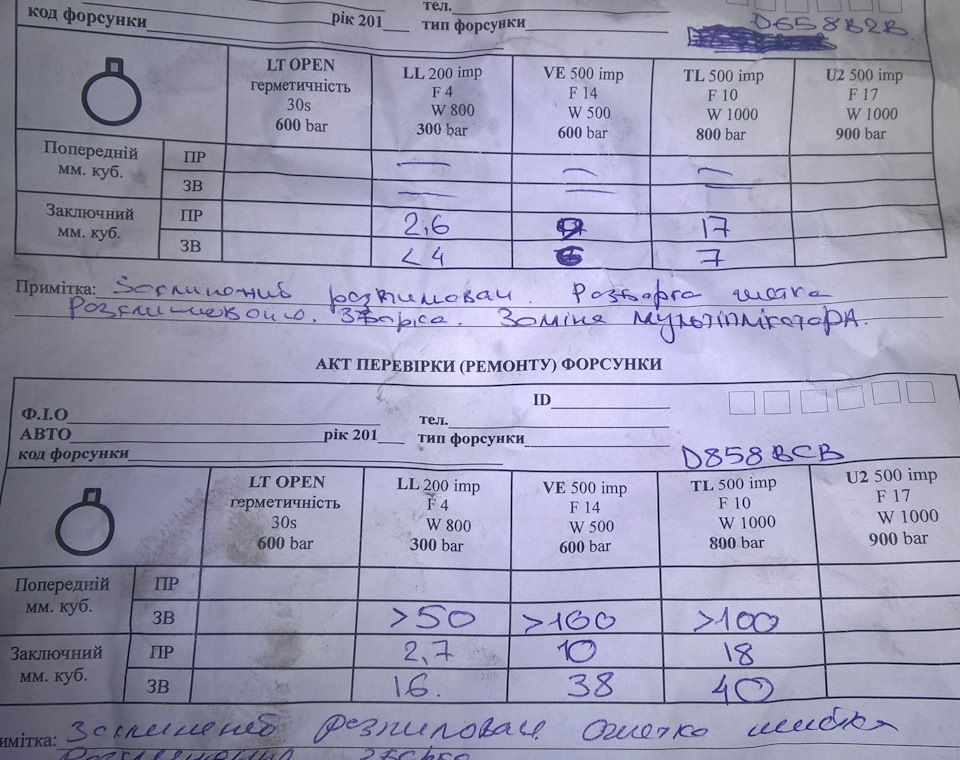 тел.
код форсунки рік 201 тип форсунки
D658B2B
LT OPEN герметичність 30s 600 bar
LL 200 imp F 4 W 800 300 bar
VE 500 imp F 14 W 500 600 bar
TL 500 imp F 10 W 1000 800 bar
U2 500 imp F 17 W 1000 900 bar
Попередній мм. куб.
ПР — — —
ЗВ
Заключний мм. куб.
ПР 2,6 17
ЗВ <4 7
Примітка: Розборка чистка
Зборка. Заміна мультіплікатора.
АКТ ПЕРЕВІРКИ (РЕМОНТУ) ФОРСУНКИ
ID
Ф.І.О тел.
АВТО рік 201 тип форсунки
код форсунки
D858BCB
LT OPEN герметичність 30s 600 bar
LL 200 imp F 4 W 800 300 bar
VE 500 imp F 14 W 500 600 bar
TL 500 imp F 10 W 1000 800 bar
U2 500 imp F 17 W 1000 900 bar
Попередній мм. куб.
ПР
ЗВ >50 >100 >100
Заключний мм. куб.
ПР 2,7 10 18
ЗВ 16. 38 40
имітка:
зборка